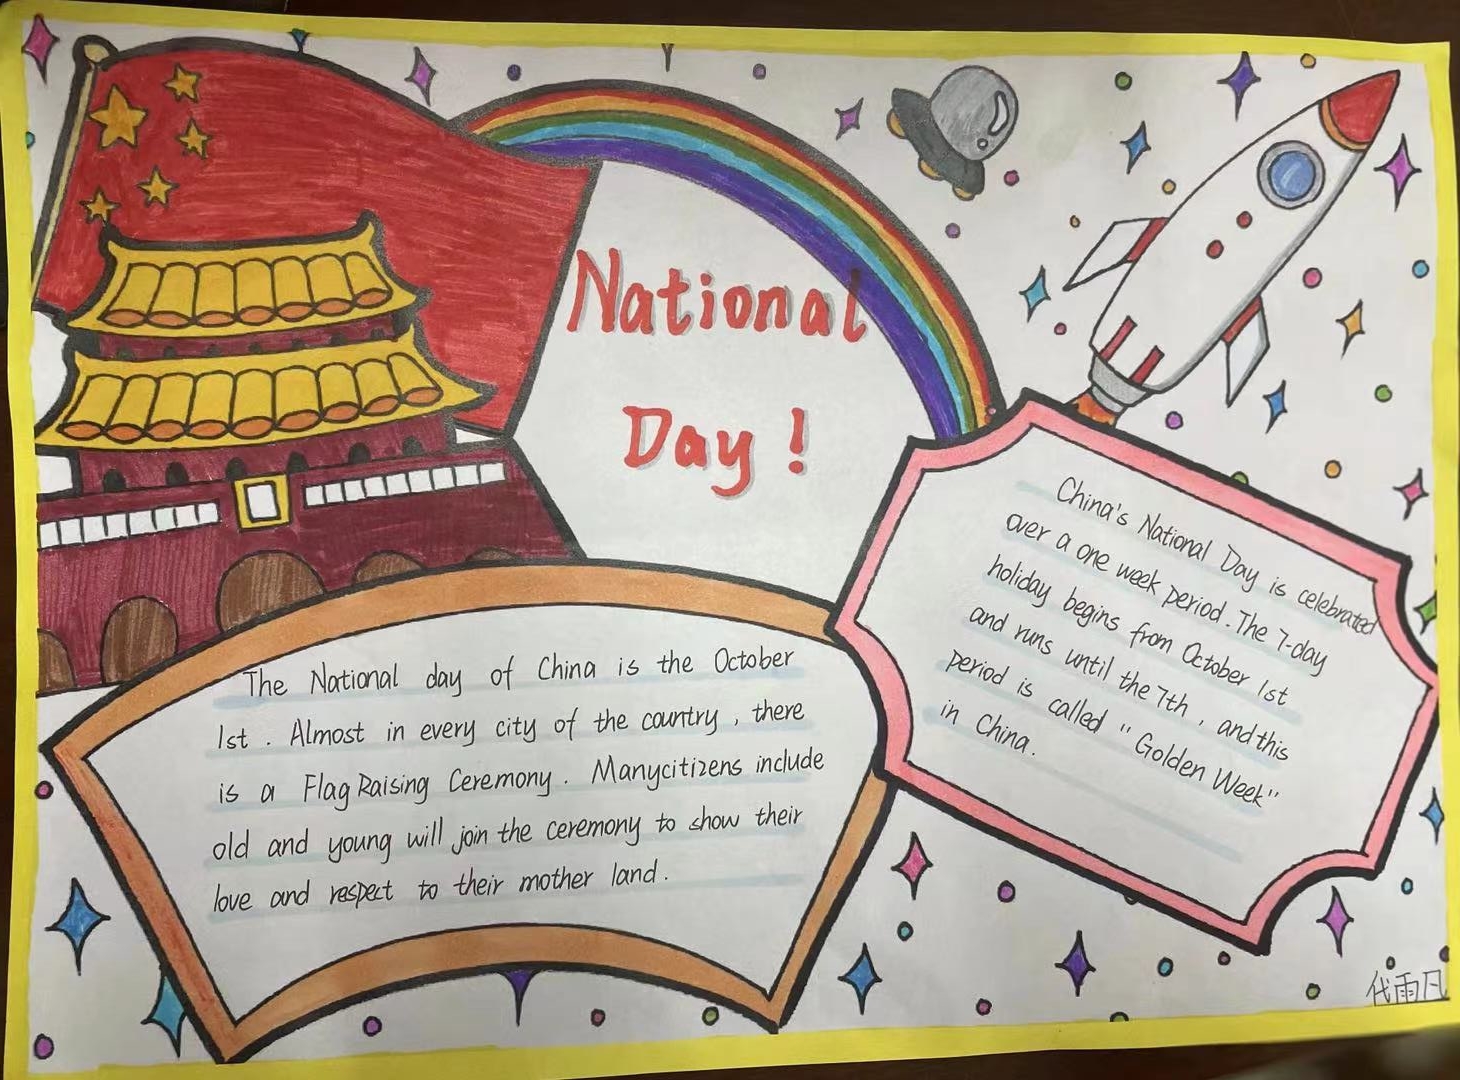 National
Day !
The National day of China is the October
1st . Almost in every city of the country , there
is a Flag Raising Ceremony . Manycitizens include
old and young will join the ceremony to show their
love and respect to their mother land .
China's National Day is celebrated
over a one week period . The 7-day
holiday begins from October 1st
and runs until the 7th , and this
period is called "Golden Week"
in China .
代雨凡